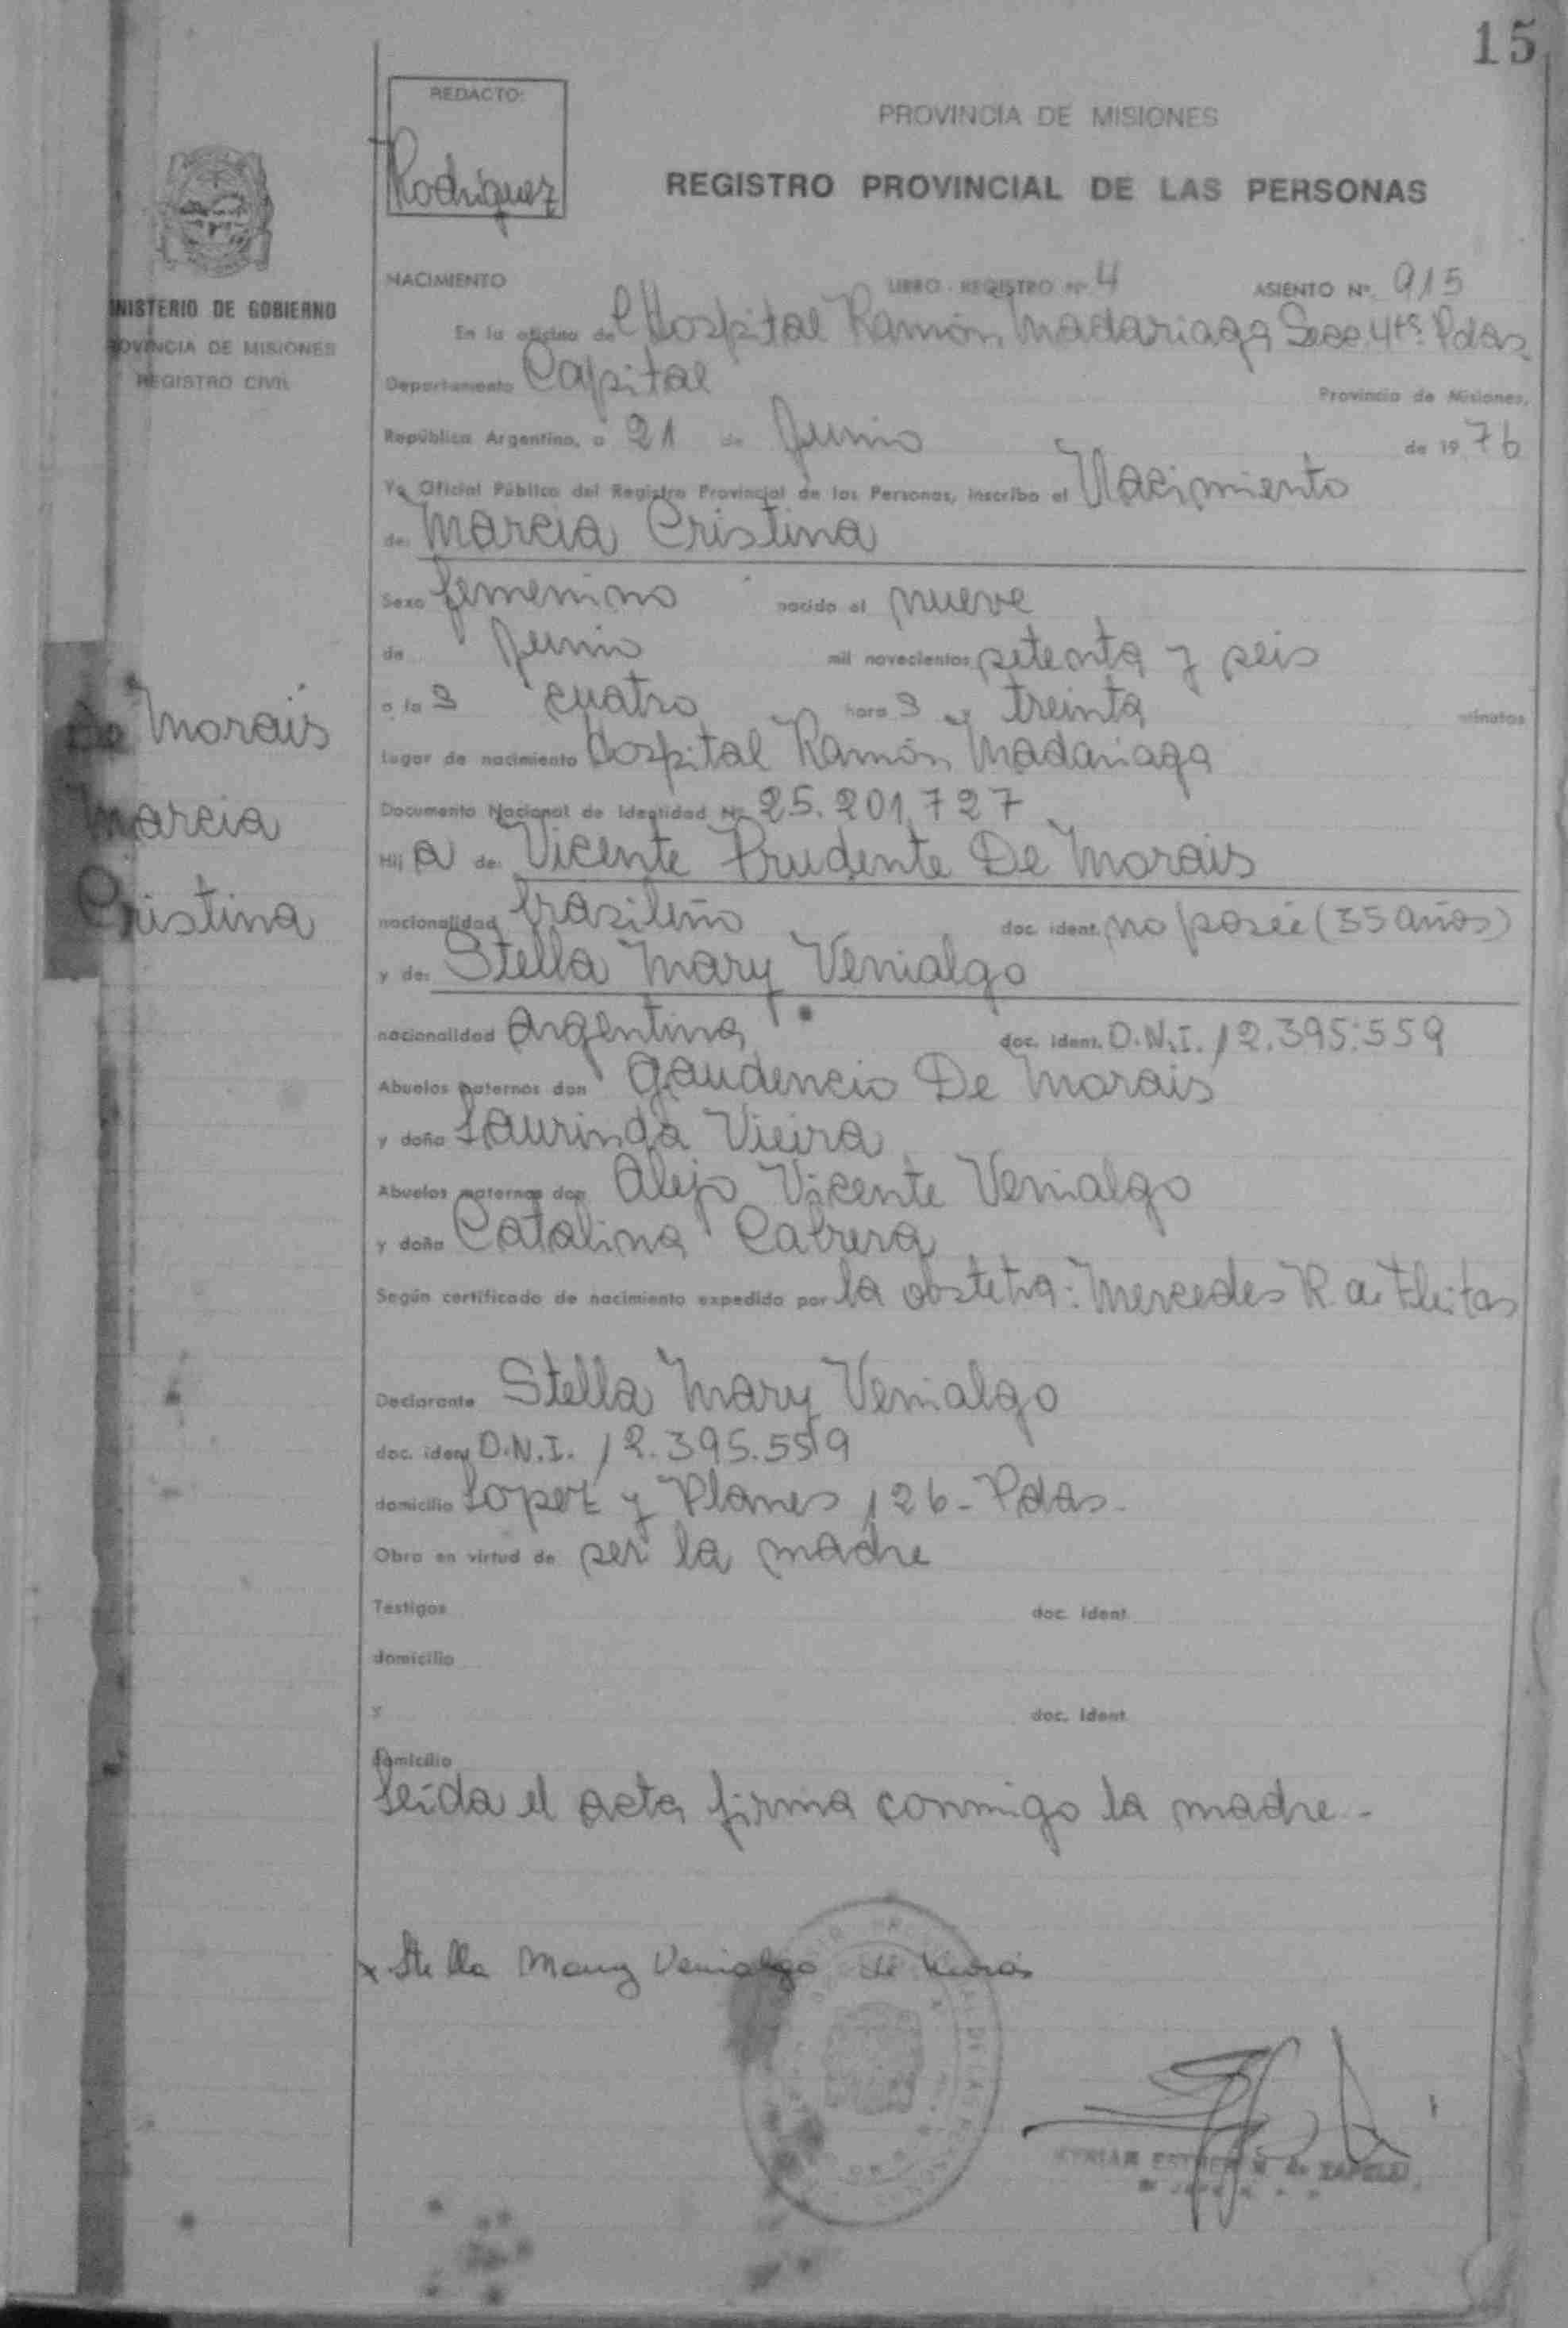 15
REDACTO:
Rodriguez
PROVINCIA DE MISIONES
REGISTRO PROVINCIAL DE LAS PERSONAS
MINISTERIO DE GOBIERNO
PROVINCIA DE MISIONES
REGISTRO CIVIL
NACIMIENTO LIBRO - REGISTRO Nº 4 ASIENTO Nº 915
En la oficina del Hospital Ramón Madariaga Secc. 4ta. Pdas.
Departamento Capital Provincia de Misiones,
República Argentina, a 21 de Junio de 1976
Yo Oficial Público del Registro Provincial de las Personas, inscribo el Nacimiento
de: Marcia Cristina
Sexo femenino nacido el nueve
de Junio mil novecientos setenta y seis
a las cuatro horas y treinta minutos
lugar de nacimiento Hospital Ramón Madariaga
Documento Nacional de Identidad Nº 25.201.727
Hija de: Vicente Prudente De Morais
nacionalidad brasileño doc. ident. no poseé (35 años)
y de: Stella Mary Venialgo
nacionalidad Argentina doc. ident. D.N.I. 12.395.559
Abuelos paternos don Gaudencio De Morais
y doña Laurinda Vieira
Abuelos maternos don Alejo Vicente Venialgo
y doña Catalina Cabrera
Según certificado de nacimiento expedido por la obstetra: Mercedes R. de Fleitas
Declarante Stella Mary Venialgo
doc. ident D.N.I. 12.395.559
domicilio Lopez y Planes 126 - Pdas -
Obra en virtud de ser la madre
Testigos doc. ident.
domicilio
y doc. ident.
domicilio
Leída el acta firma conmigo la madre -
De Morais
Marcia
Cristina
x Stella Mary Venialgo de